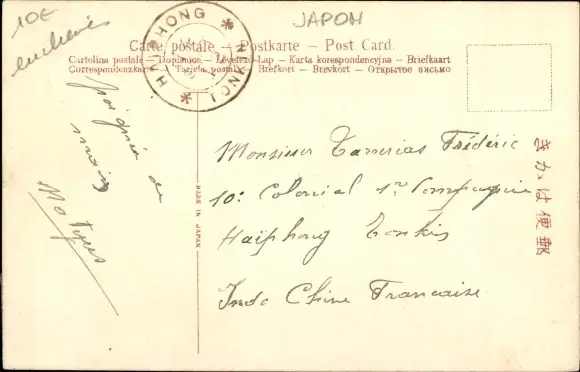 10E
JAPON
HAIPHONG * TONKIN *
Carte postale — Postkarte — Post Card.
Cartolina postale – Dopisnice – Levelező-Lap – Karta korespondencyjna – Briefkaart
Correspondenzkarte – Tarjeta postal – Brefkort – Brevkort – Открытое письмо
poignée de
main
MADE IN JAPAN
Monsieur Frédéric
10e Colonial 1re Compagnie
Haiphong Tonkin
Indo Chine Francaise
きかは便郵